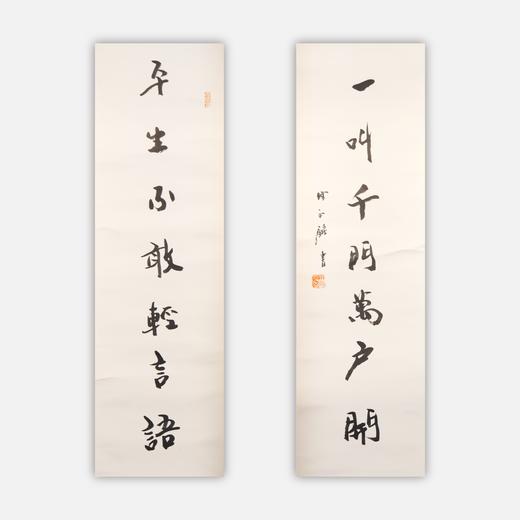 平生不敢輕言語
一叫千門萬户開